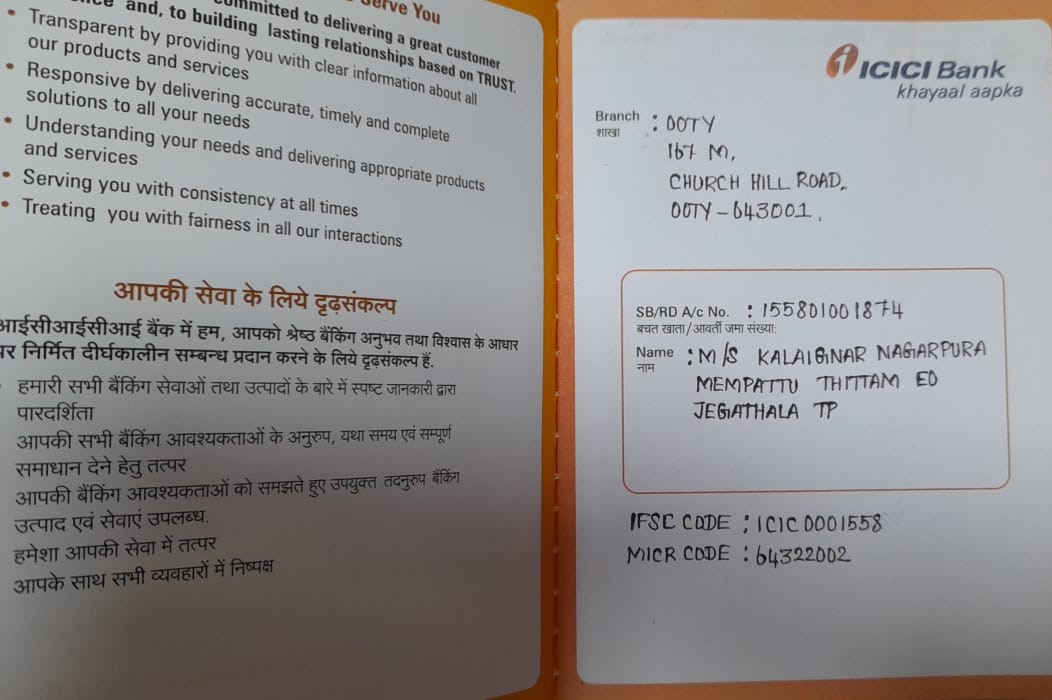 Serve You
and, to building lasting relationships based on TRUST.
committed to delivering a great customer
• Transparent by providing you with clear information about all
our products and services
• Responsive by delivering accurate, timely and complete
solutions to all your needs
• Understanding your needs and delivering appropriate products
and services
• Serving you with consistency at all times
• Treating you with fairness in all our interactions
आपकी सेवा के लिये दृढ़संकल्प
आईसीआईसीआई बैंक में हम, आपको श्रेष्ठ बैंकिंग अनुभव तथा विश्वास के आधार
पर निर्मित दीर्घकालीन सम्बन्ध प्रदान करने के लिये दृढ़संकल्प हैं.
हमारी सभी बैंकिंग सेवाओं तथा उत्पादों के बारे में स्पष्ट जानकारी द्वारा
पारदर्शिता
आपकी सभी बैंकिंग आवश्यकताओं के अनुरुप, यथा समय एवं सम्पूर्ण
समाधान देने हेतु तत्पर
आपकी बैंकिंग आवश्यकताओं को समझते हुए उपयुक्त तदनुरुप बैंकिंग
उत्पाद एवं सेवाएं उपलब्ध.
हमेशा आपकी सेवा में तत्पर
आपके साथ सभी व्यवहारों में निष्पक्ष
ICICI Bank
khayaal aapka
Branch : OOTY
शाखा
167 M,
CHURCH HILL ROAD,
OOTY - 643001.
SB/RD A/c No. : 155801001874
बचत खाता/आवर्ती जमा संख्या:
Name : M/S KALAIGNAR NAGARPURA
नाम
MEMPATTU THITTAM EO
JEGATHALA TP
IFSC CODE : ICIC0001558
MICR CODE : 64322002